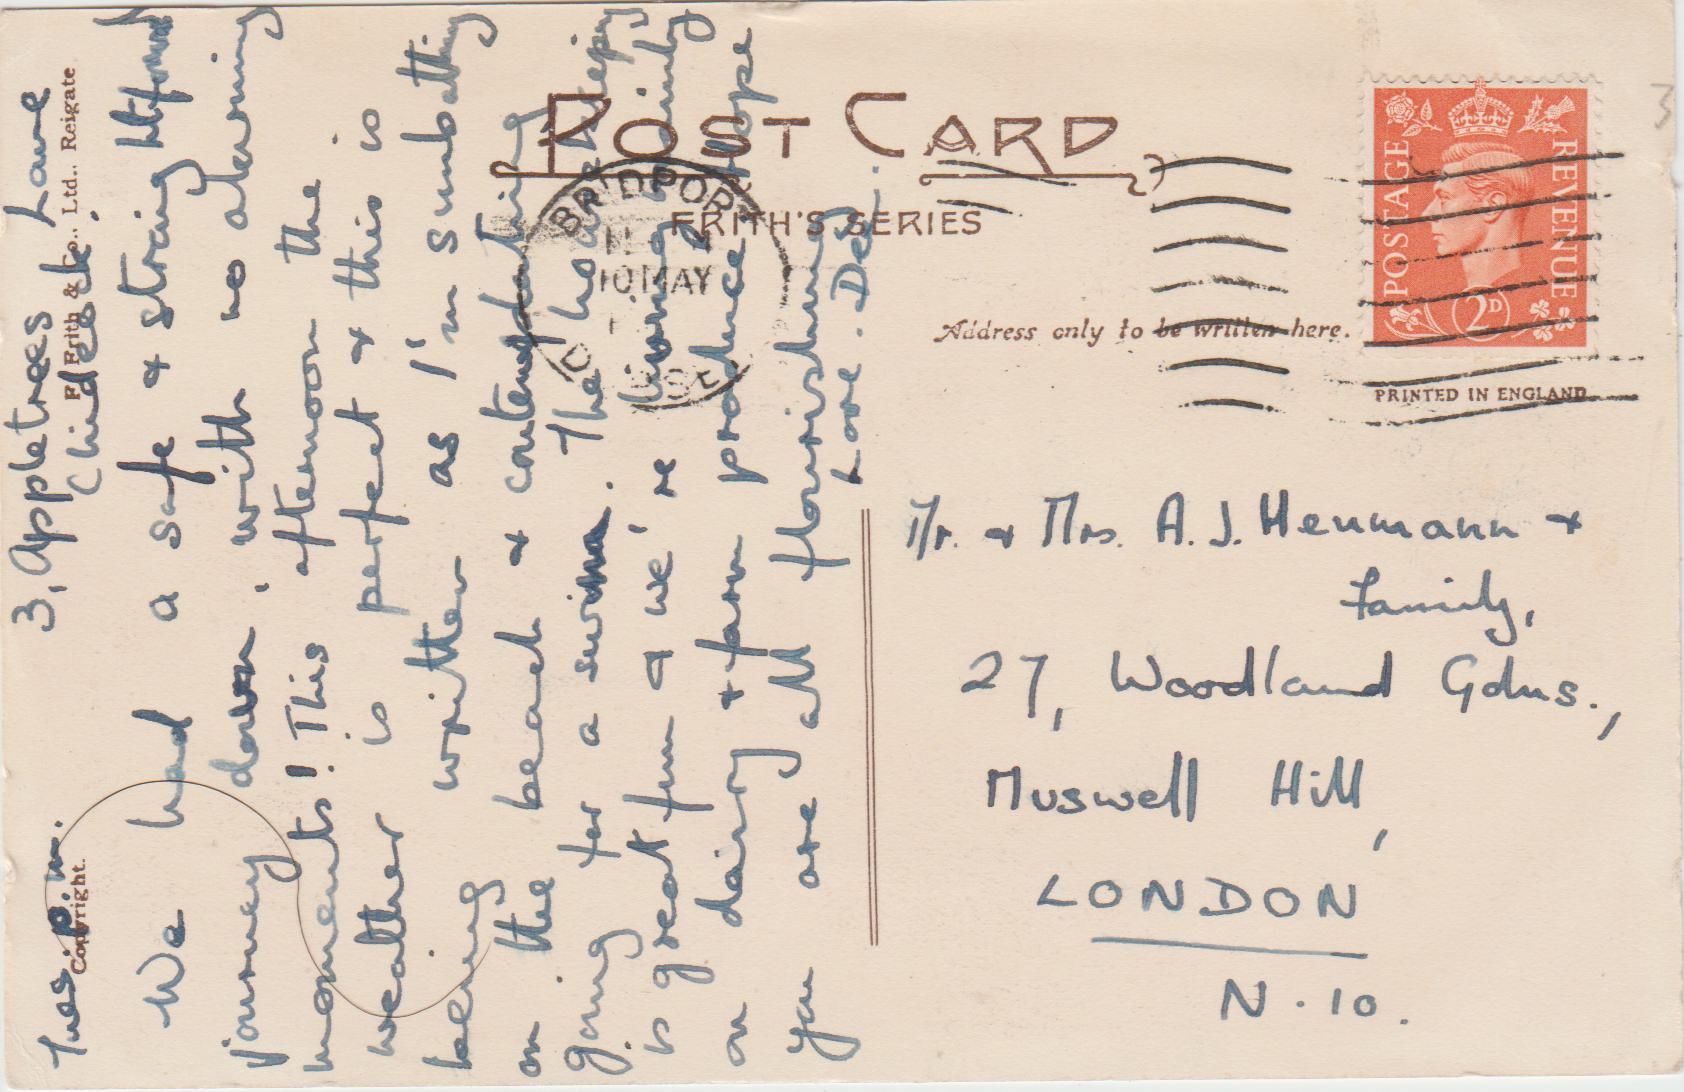 POST CARD
FRITH'S SERIES
Address only to be written here.
PRINTED IN ENGLAND
POSTAGE
REVENUE
2D
BRIDPORT
10 MAY
DORSET
3
Copyright.
F. Frith & Co., Ltd., Reigate
Tues. p.m.
3, Appletrees Lane
Chideock.
We had a safe & straightforward
journey down, with no alarming
moments! This afternoon the
weather is perfect & this is
being written as I'm sunbathing
on the beach & contemplating
going for a swim. The housekeeping
is great fun & we're living mainly
on dairy & farm produce. Hope
you are all flourishing
Love. Des.
Mr. & Mrs. A. J. Heumann &
Family,
27, Woodland Gdns.,
Muswell Hill,
LONDON
N.10.